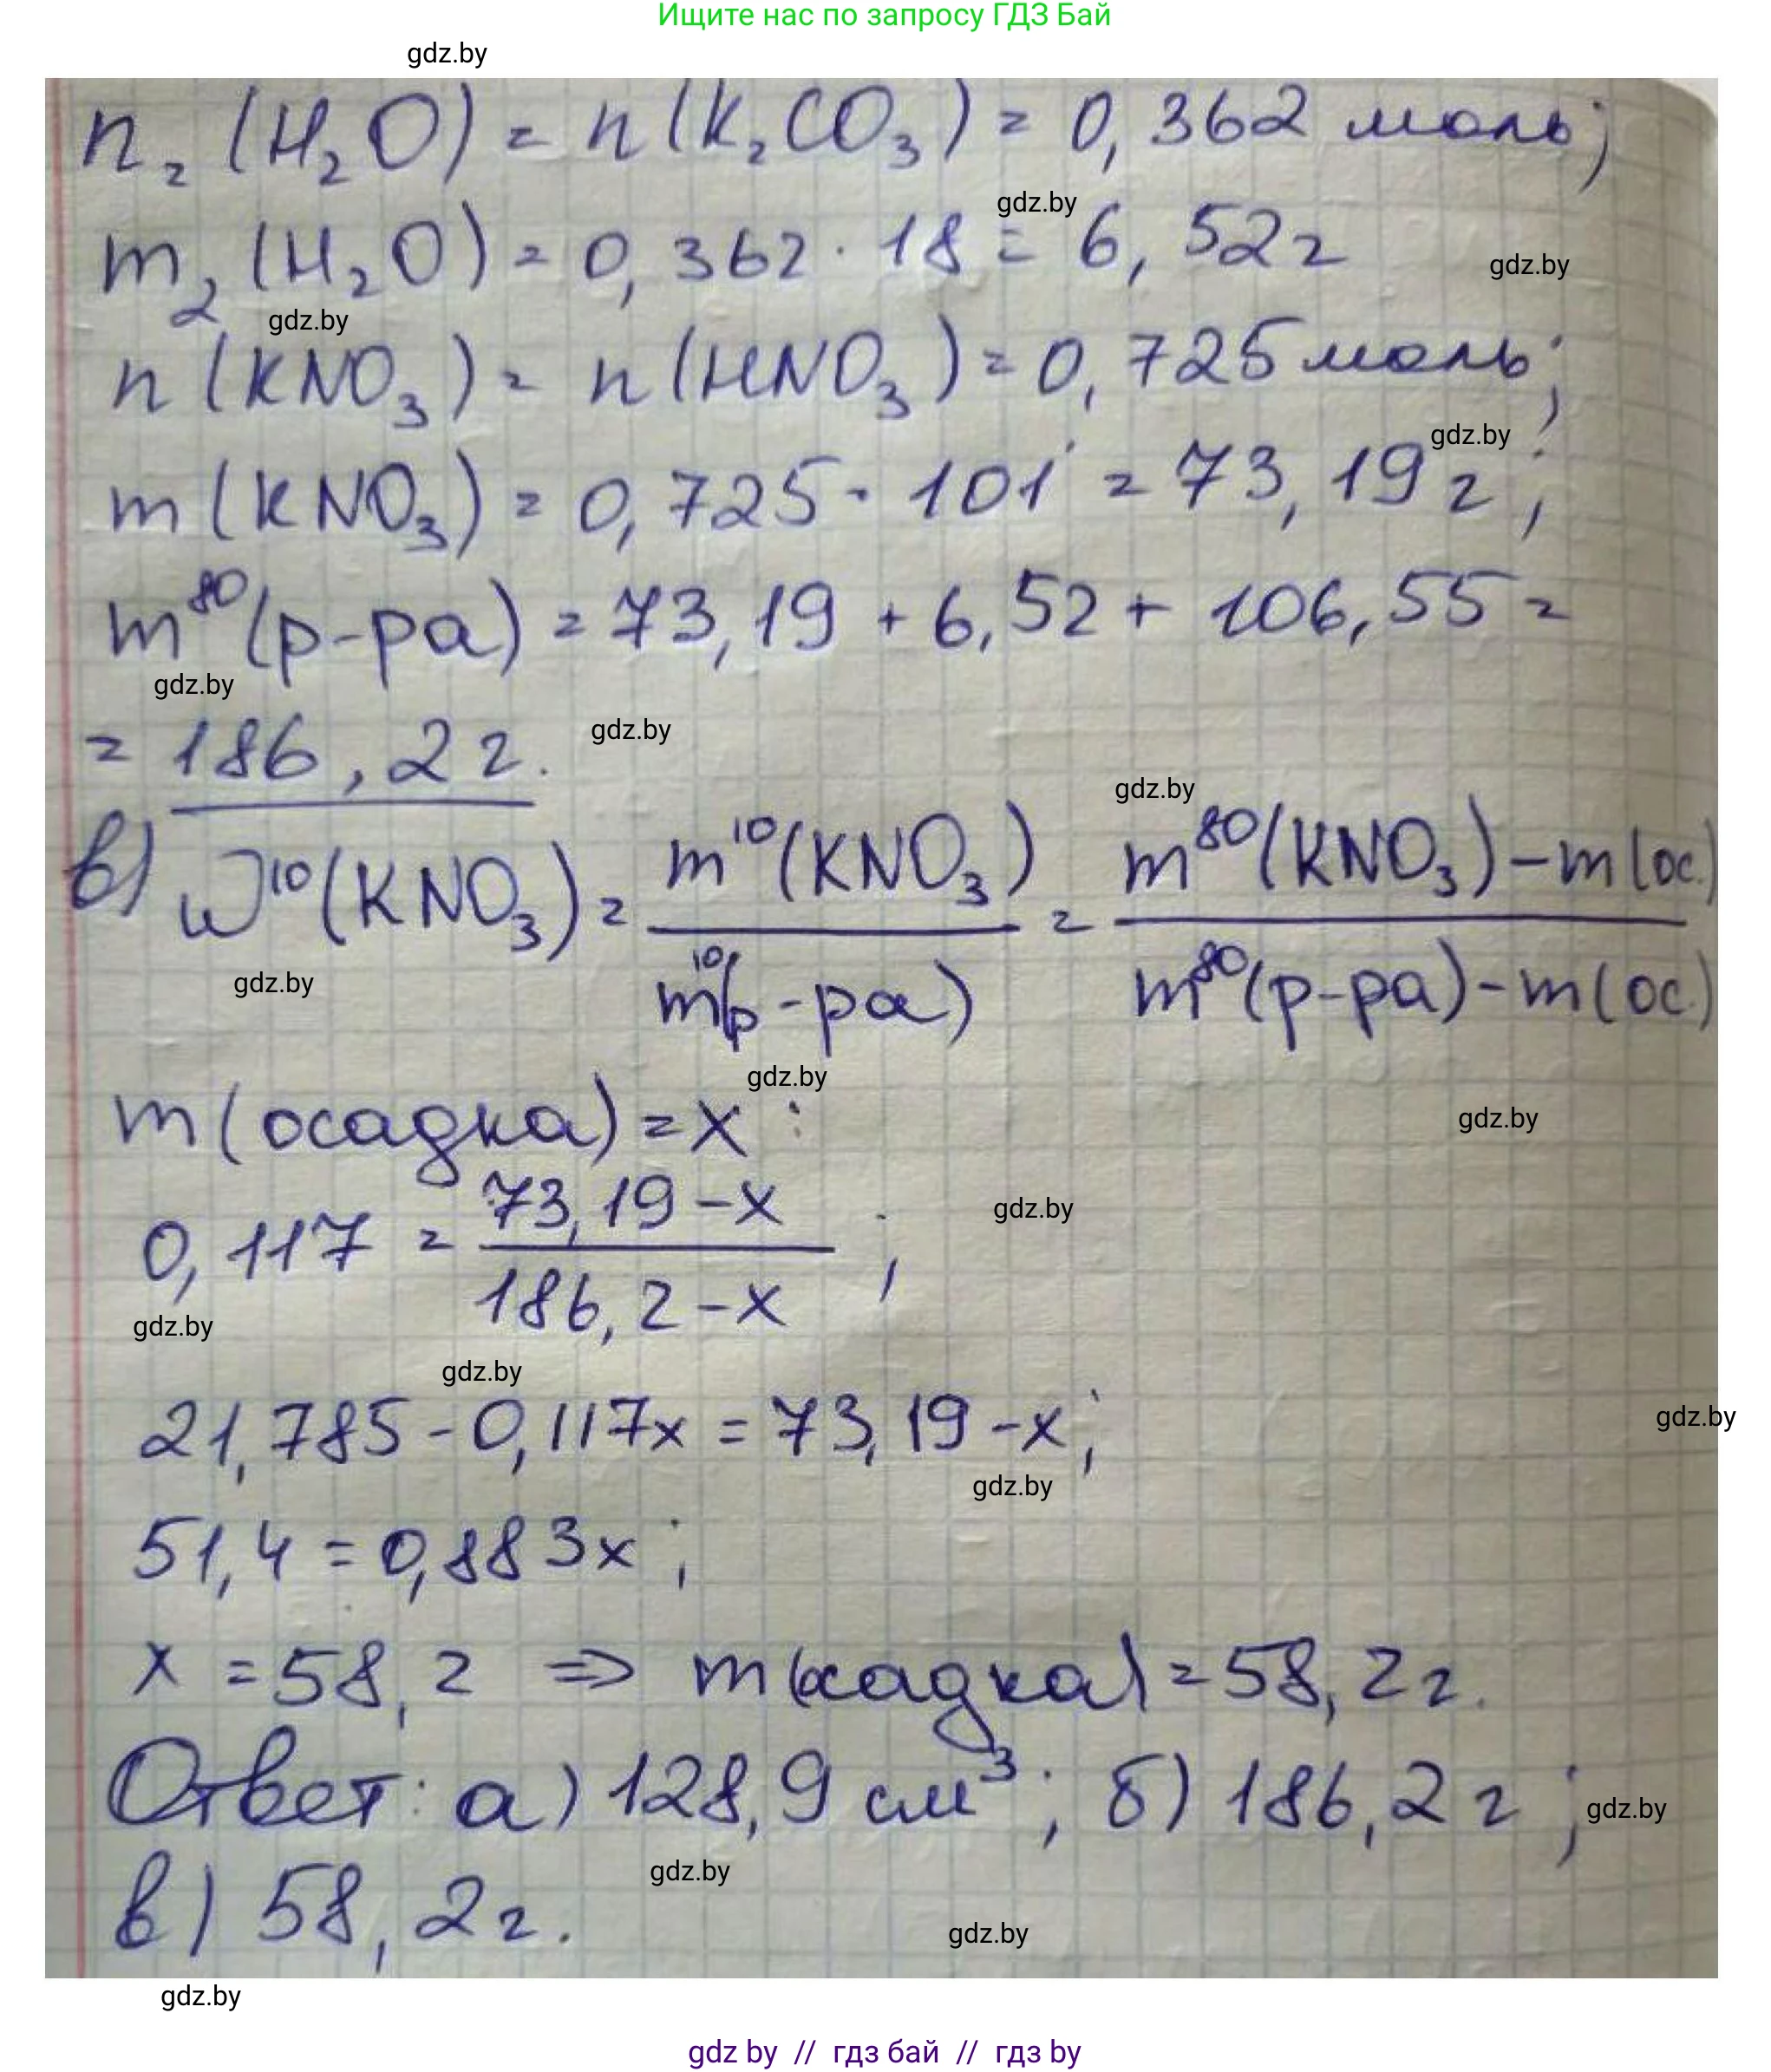 Ищите нас по запросу ГДЗ Бай
gdz.by
n₂(H₂O) = n(K₂CO₃) = 0,362 моль;
gdz.by
m₂(H₂O) = 0,362 · 18 = 6,52 г
gdz.by
gdz.by
n(KNO₃) = n(HNO₃) = 0,725 моль;
gdz.by
m(KNO₃) = 0,725 · 101 = 73,19 г;
m⁸⁰(р-ра) = 73,19 + 6,52 + 106,55 =
gdz.by
gdz.by
= 186,2 г.
gdz.by
в) W¹⁰(KNO₃) = m¹⁰(KNO₃) / m¹⁰(р-ра) = m⁸⁰(KNO₃) - m(ос.) / m⁸⁰(р-ра) - m(ос.)
gdz.by
gdz.by
m(осадка) = x:
gdz.by
0,117 = 73,19 - x / 186,2 - x ;
gdz.by
gdz.by
gdz.by
21,785 - 0,117x = 73,19 - x;
gdz.by
gdz.by
51,4 = 0,883x;
x = 58,2 ⇒ m(осадка) = 58,2 г.
Ответ: а) 128,9 см³; б) 186,2 г;
gdz.by
gdz.by
в) 58,2 г.
gdz.by
gdz.by
gdz by // гдз бай // гдз by